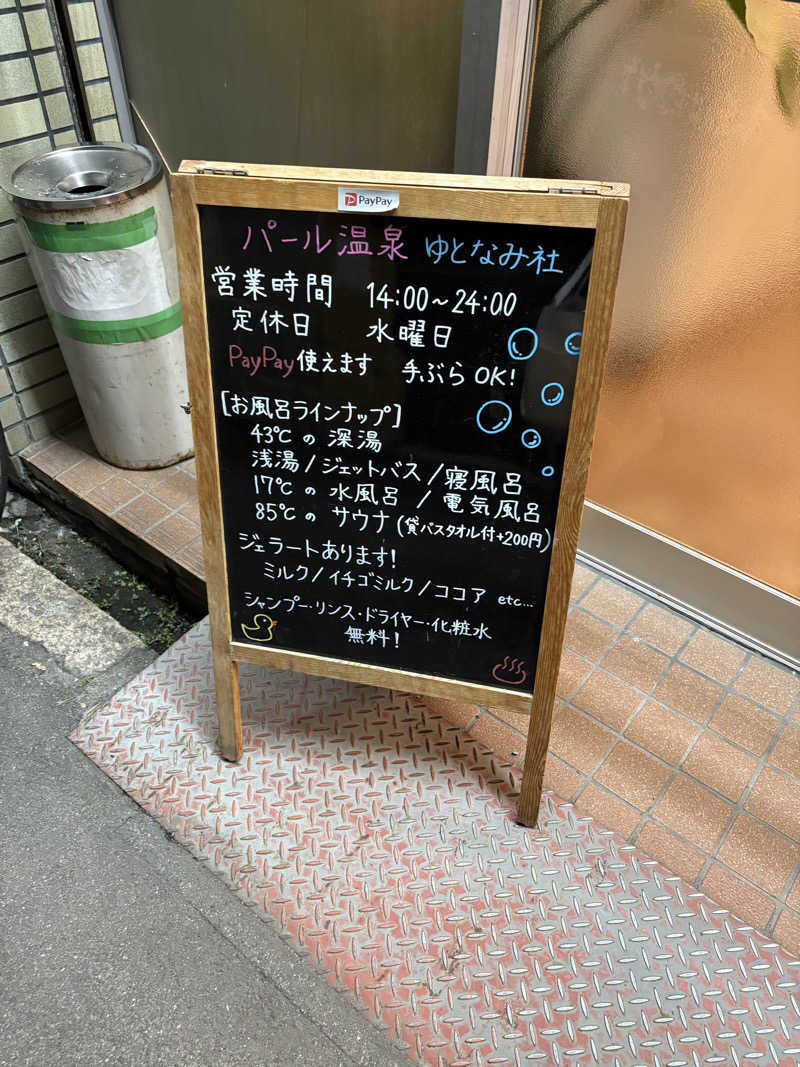 PayPay
パール温泉 ゆとなみ社
営業時間 14:00~24:00
定休日 水曜日
PayPay使えます 手ぶらOK!
[お風呂ラインナップ]
43℃ の 深湯
浅湯/ジェットバス/寝風呂
17℃ の 水風呂 / 電気風呂
85℃ の サウナ(貸バスタオル付+200円)
ジェラートあります!
ミルク/イチゴミルク/ココア etc...
シャンプー・リンス・ドライヤー・化粧水
無料!